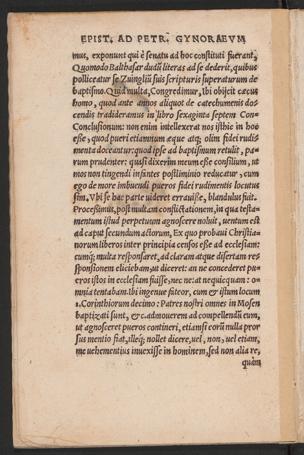 EPIST. AD PETR. GYNORAEVM
mut, exponunt qui è senatu ad hoc constituti fuerant,
Quomodo Balthasar dudū literas ad se dederit, quibus
polliceatur se Zuingliū suis scripturis superaturum de
baptismo. Quid multa, Congredimur, Ibi obijcit cæcus
homo, quod ante annos aliquot de catechumenis do⸗
cendis tradideramus in libro sexaginta septem Con⸗
Conclusionum: non enim intellexerat nos isthic in hoc
esse, quod pueri etiamnum æque atq; olim fidei rudi⸗
menta doceantur: quod ipse ad baptismum retulit, pa⸗
rum prudenter: quasi dixerim meum esse consilium, ut
mos non tingendi infantes postliminio reducatur, cum
ego de more imbuendi pueros fidei rudimentis locutus
sim. Vbi se hac parte uideret errauisse, blandulus fuit.
Processimus, post multam conflictationem, in qua testa⸗
mentum istud perpetuum agnoscere noluit, uentum est
ad caput secundum actorum, Ex quo probaui Christia⸗
norum liberos inter principia censos esse ad ecclesiam:
cumq; multa responsaret, ad claram atque disertam res
sponsionem eliciebam, ut diceret: an ne concederet pu⸗
eros istos in ecclesiam fuisse, nec ne: at nequicquam: o⸗
mnia tentabam. Ibi ingenue fiteor, cum & istum locum
1. Corinthiorum decimo: Patres nostri omnes in Mosen
baptizati sunt, &c. admouerem ad compellendū eum,
ut agnosceret pueros contineri, etiamsi eorū nulla pror
sus mentio fiat, illeq; nollet dicere, uel, non, uel etiam,
me uehementius inuexisse in hominem, sed non alia re,
quàm